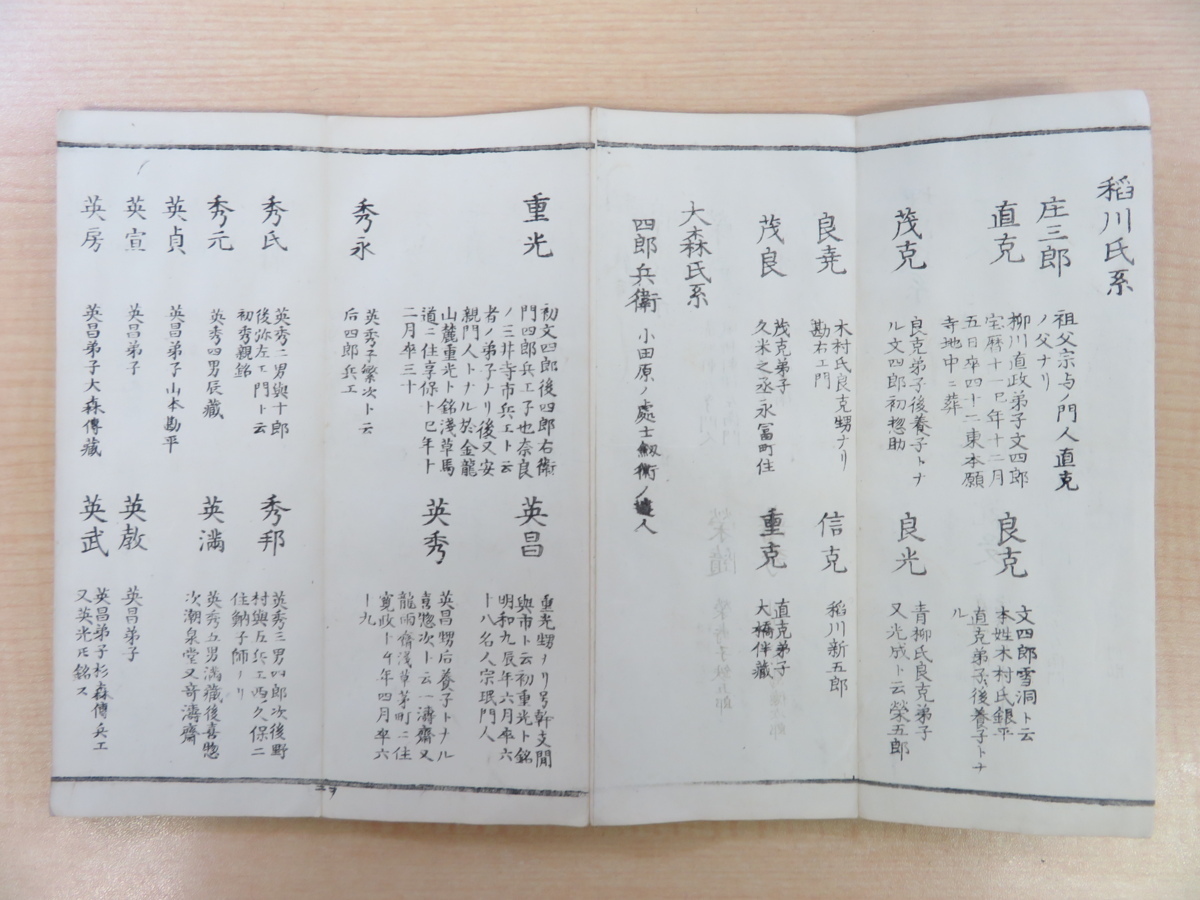 稻川氏系
庄三郎
祖父宗与ノ門人直克
ノ父ナリ
直克
柳川直政弟子文四郎
宝暦十一巳年十二月
五日卒四十二東本願
寺地中ニ葬
良克
文四郎雪洞ト云
本姓木村氏銀平
直克弟子後養子トナ
ル
茂克
良克弟子後養子トナ
ル文四郎初惣助
良光
青柳氏良克弟子
又光成ト云榮五郎
良堯
木村氏良克甥ナリ
勘右エ門
信克
稻川新五郎
茂良
茂克弟子
久米之丞永冨町住
重克
直克弟子
大橋伴藏
大森氏系
四郎兵衛
小田原ノ處士劔術ノ達人
重光
初文四郎後四郎右衛
門四郎兵工子也奈良
ノ三井寺市兵工ト云
者ノ弟子ナリ後又安
親門人トナル於金龍
山麓重光ト銘浅草馬
道ニ住享保十巳年十
二月卒三十
英昌
重光甥ナリ号幹支間
與市ト云初重光ト銘
明和九辰年六月卒六
十八名人宗珉門人
秀永
英秀子繁次ト云
后四郎兵工
英秀
英昌甥后養子トナル
喜惣次ト云一濤齋又
龍雨齋浅草茅町ニ住
寛政十午年四月卒六
十九
秀氏
英秀二男與十郎
後弥左エ門ト云
初秀親銘
秀邦
英秀三男四郎次後野
村與左兵工西久保ニ
住鈉子師ナリ
秀元
英秀四男辰藏
英満
英秀五男満藏後喜惣
次潮泉堂又奇濤齋
英貞
英昌弟子山本勘平
英宣
英昌弟子
英教
英昌弟子
英房
英昌弟子大森傳藏
英武
英昌弟子杉森傳兵工
又英光氏銘ス
二ヲ